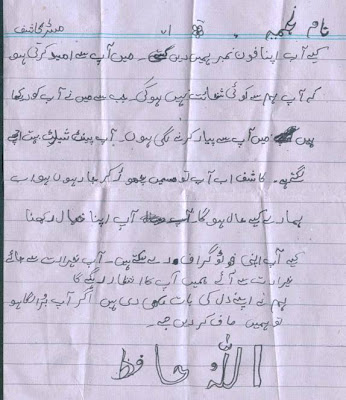 نام نجمہ مسٹر کاشف
کیے آپ اپنا فون نمبر ہمیں دیں گے۔ میں آپ سے امید کرتی ہو
کے آپ ہم سے کوئی شکایت نہیں ہوگی۔ جب سے میں نے آپ کو دیکھا
ہیں میں آپ سے پیار کرنے لگی ہوں۔ آپ پینٹ شیلٹ بہت اچھے
لگتے ہیں۔ کاشف اب آپ تو ہمیں چھوڑ کر جا رہے ہوں
ہمارے کیے حال ہو گا۔ آپ اپنا خیال رکھنا
کیے آپ اپنی فوٹو گراف دے سکتے ہیں۔ آپ خیرات سے جائے
خیرات سے آئے ہمیں آپ کا انتظار رہے گا
ہم نے اپنے دل کی بات لکھ دی ہیں اگر آپ بُرا لگا ہو
تو ہمیں ماف کر دیں
اللہ حافظ